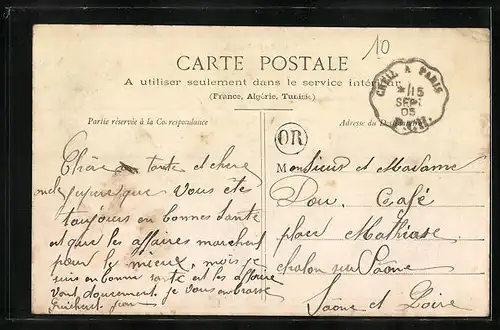 10
CARTE POSTALE
A utiliser seulement dans le service intérieur
(France, Algérie, Tunisie)
Partie réservée à la Correspondance
Adresse du Destinataire
CREIL A PARIS
15
SEPT
05
OR
Chère tante et cher
oncle j'espère que vous ête
toujours en bonnes santé
et que les affaires marchent
pour le mieux, mois je
suis en bonne santé et les affaire
vont doucement je vous embrasse
Monsieur et Madame
Dou. Café
place Mathiase
chalon sur Saône
Saône et Loire